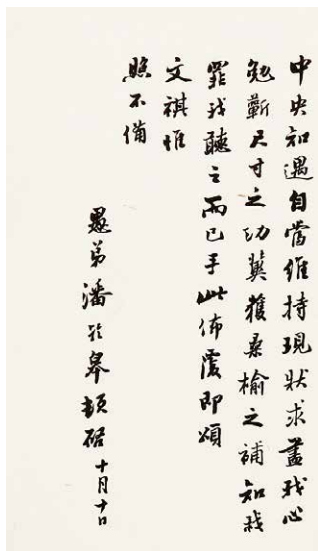 中央知遇自當維持現狀求盡我心
勉蘄尺寸之功冀獲桑榆之補知我
罪我聽之而已手此佈覆即頌
文祺惟
照不備
愚弟潘齡皋頓啓十月十日